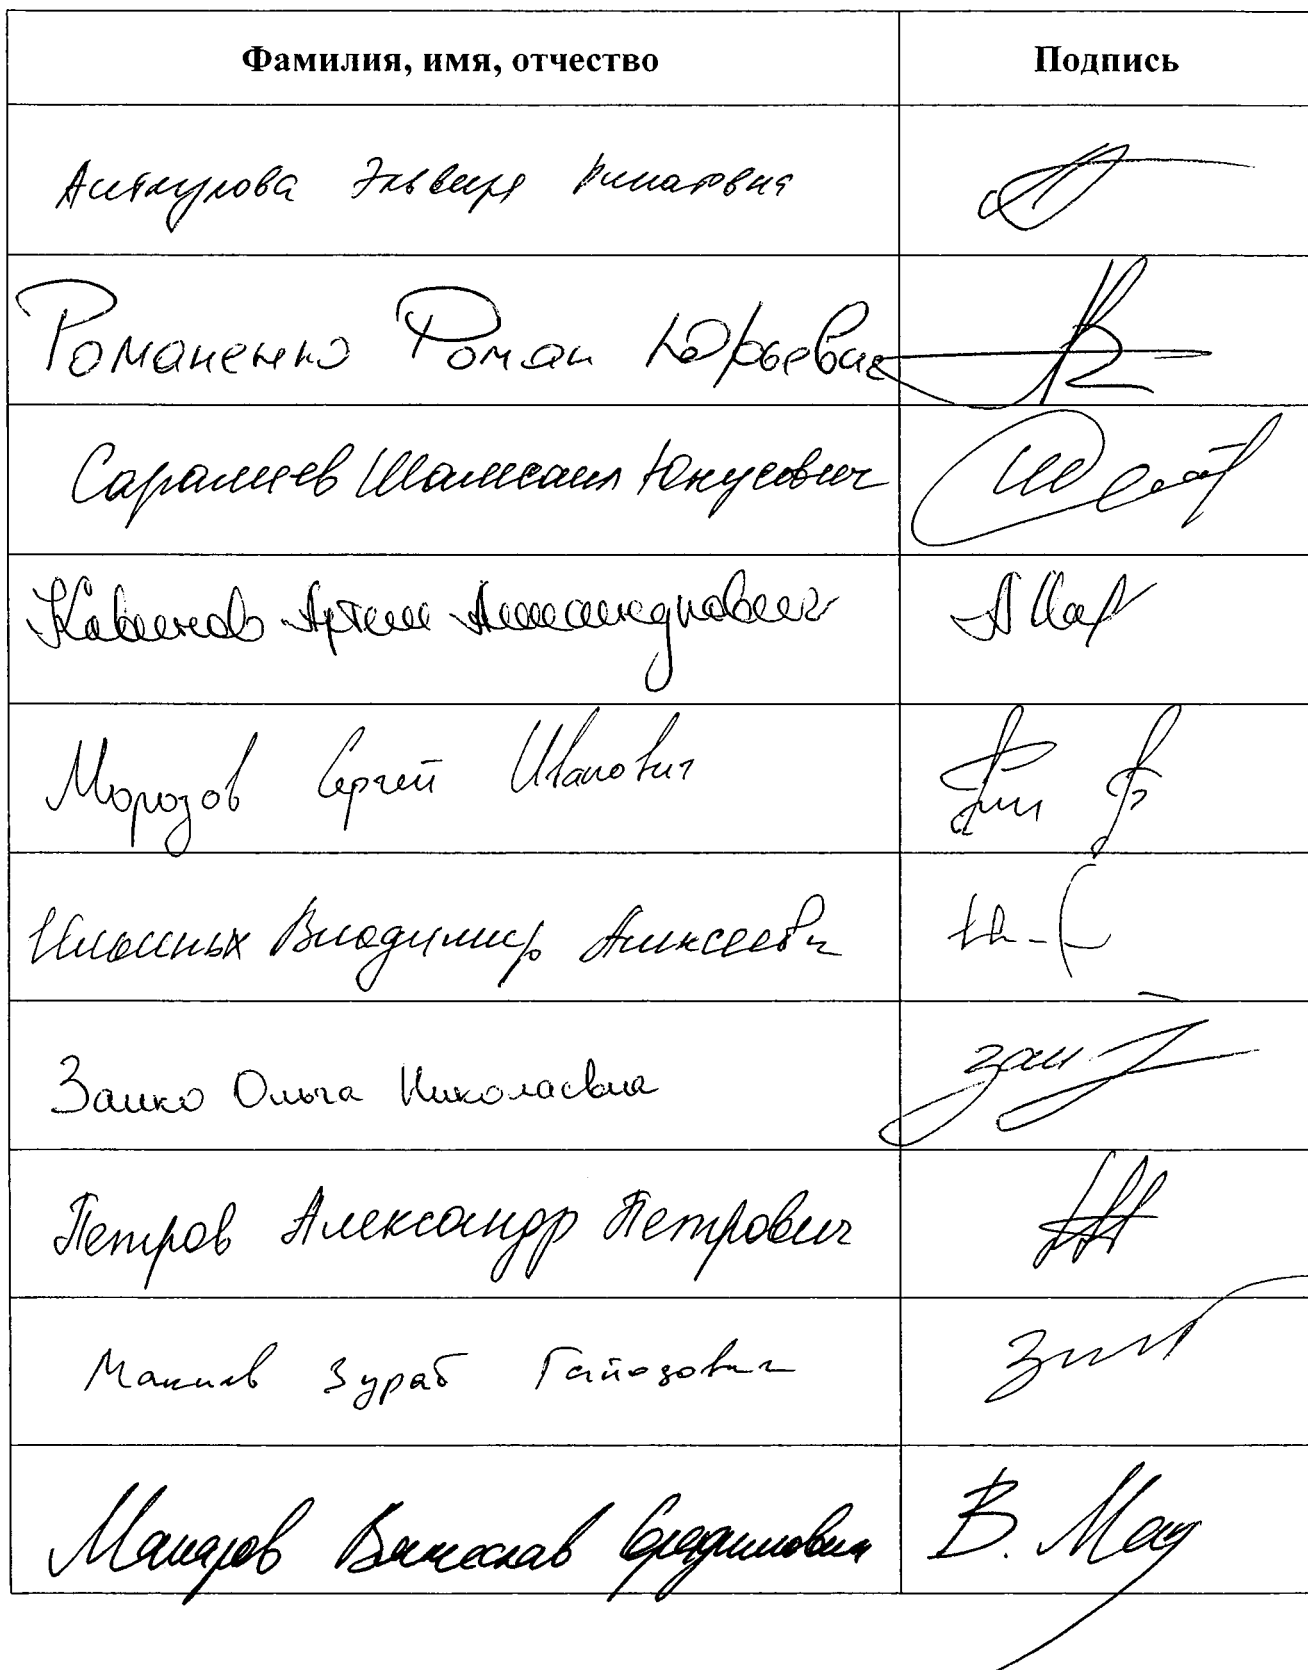 Фамилия, имя, отчество Подпись
Аиткулова Эльвира Ринатовна
Романенко Роман Юрьевич
Саралиев Шамсаил Юнусович
Кавинов Артём Александрович
Морозов Сергей Иванович
Ильиных Владимир Алексеевич
Заико Ольга Николаевна
Петров Александр Петрович
Макиев Зураб Гайозович
Макаров Вячеслав Серафимович В. Мак